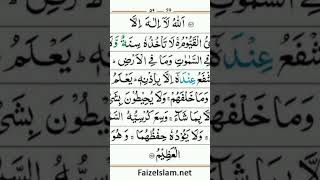 اَللّٰهُ لَاۤ اِلٰهَ اِلَّا
الْقَيُّوْمُ ۚ لَا تَاْخُذُهٗ سِنَةٌ وَّ
السَّمٰوٰتِ وَمَا فِي الْاَرْضِ ؕ
شْفَعُ عِنْدَهٗۤ اِلَّا بِاِذْنِهٖ ؕ يَعْلَمُ
وَمَا خَلْفَهُمْ ۚ وَلَا يُحِيْطُوْنَ بِشَىْ
لَّا بِمَا شَآءَ ۚ وَسِعَ كُرْسِيُّهُ السَّ
وَلَا يَـُٔوْدُهٗ حِفْظُهُمَا ۚ وَهُوَ
الْعَظِيْمُ
FaizeIslam.net